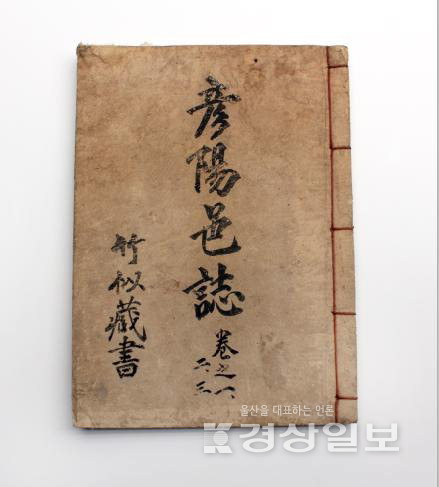 彦陽邑誌
卷之一
竹似藏書
울산을 대표하는 언론
경상일보